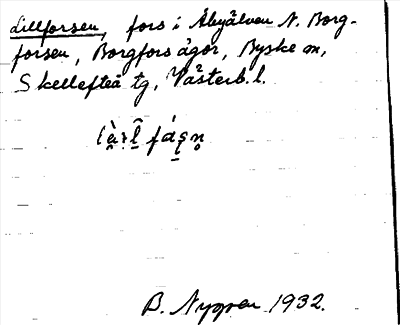 Lillforsen, fors i Åbyälven N. Borg-
forsen, Borgfors ägor, Byske sn,
Skellefteå tg, Västerb. l.
B. Nygren 1932.